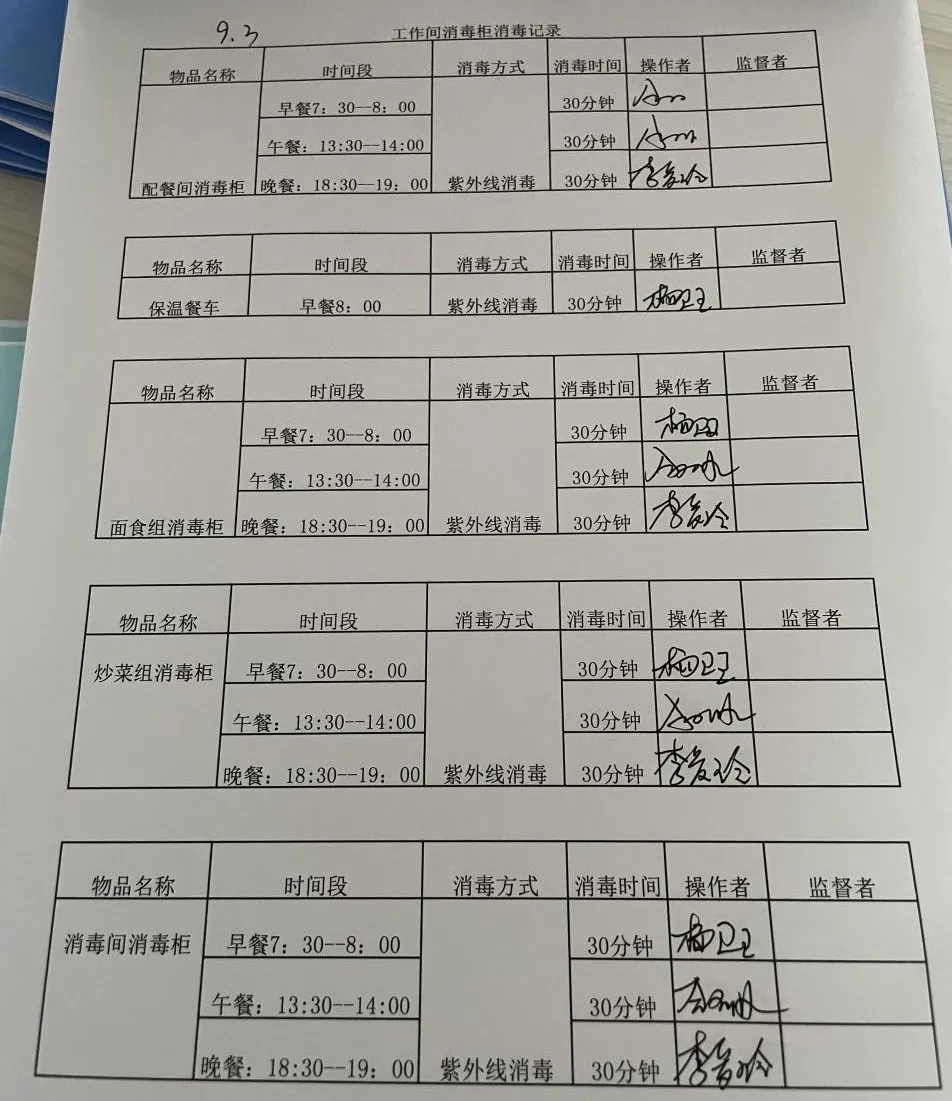 9.3
工作间消毒柜消毒记录
物品名称 时间段 消毒方式 消毒时间 操作者 监督者
早餐7：30--8：00 30分钟
午餐：13:30--14:00 30分钟
配餐间消毒柜 晚餐：18:30--19：00 紫外线消毒 30分钟 李爱玲
物品名称 时间段 消毒方式 消毒时间 操作者 监督者
保温餐车 早餐8：00 紫外线消毒 30分钟
物品名称 时间段 消毒方式 消毒时间 操作者 监督者
早餐7：30--8：00 30分钟
午餐：13:30--14:00 30分钟
面食组消毒柜 晚餐：18:30--19：00 紫外线消毒 30分钟 李爱玲
物品名称 时间段 消毒方式 消毒时间 操作者 监督者
炒菜组消毒柜 早餐7：30--8：00 30分钟
午餐：13:30--14:00 30分钟
晚餐：18:30--19：00 紫外线消毒 30分钟 李爱玲
物品名称 时间段 消毒方式 消毒时间 操作者 监督者
消毒间消毒柜 早餐7：30--8：00 30分钟
午餐：13:30--14:00 30分钟
晚餐：18:30--19：00 紫外线消毒 30分钟 李爱玲